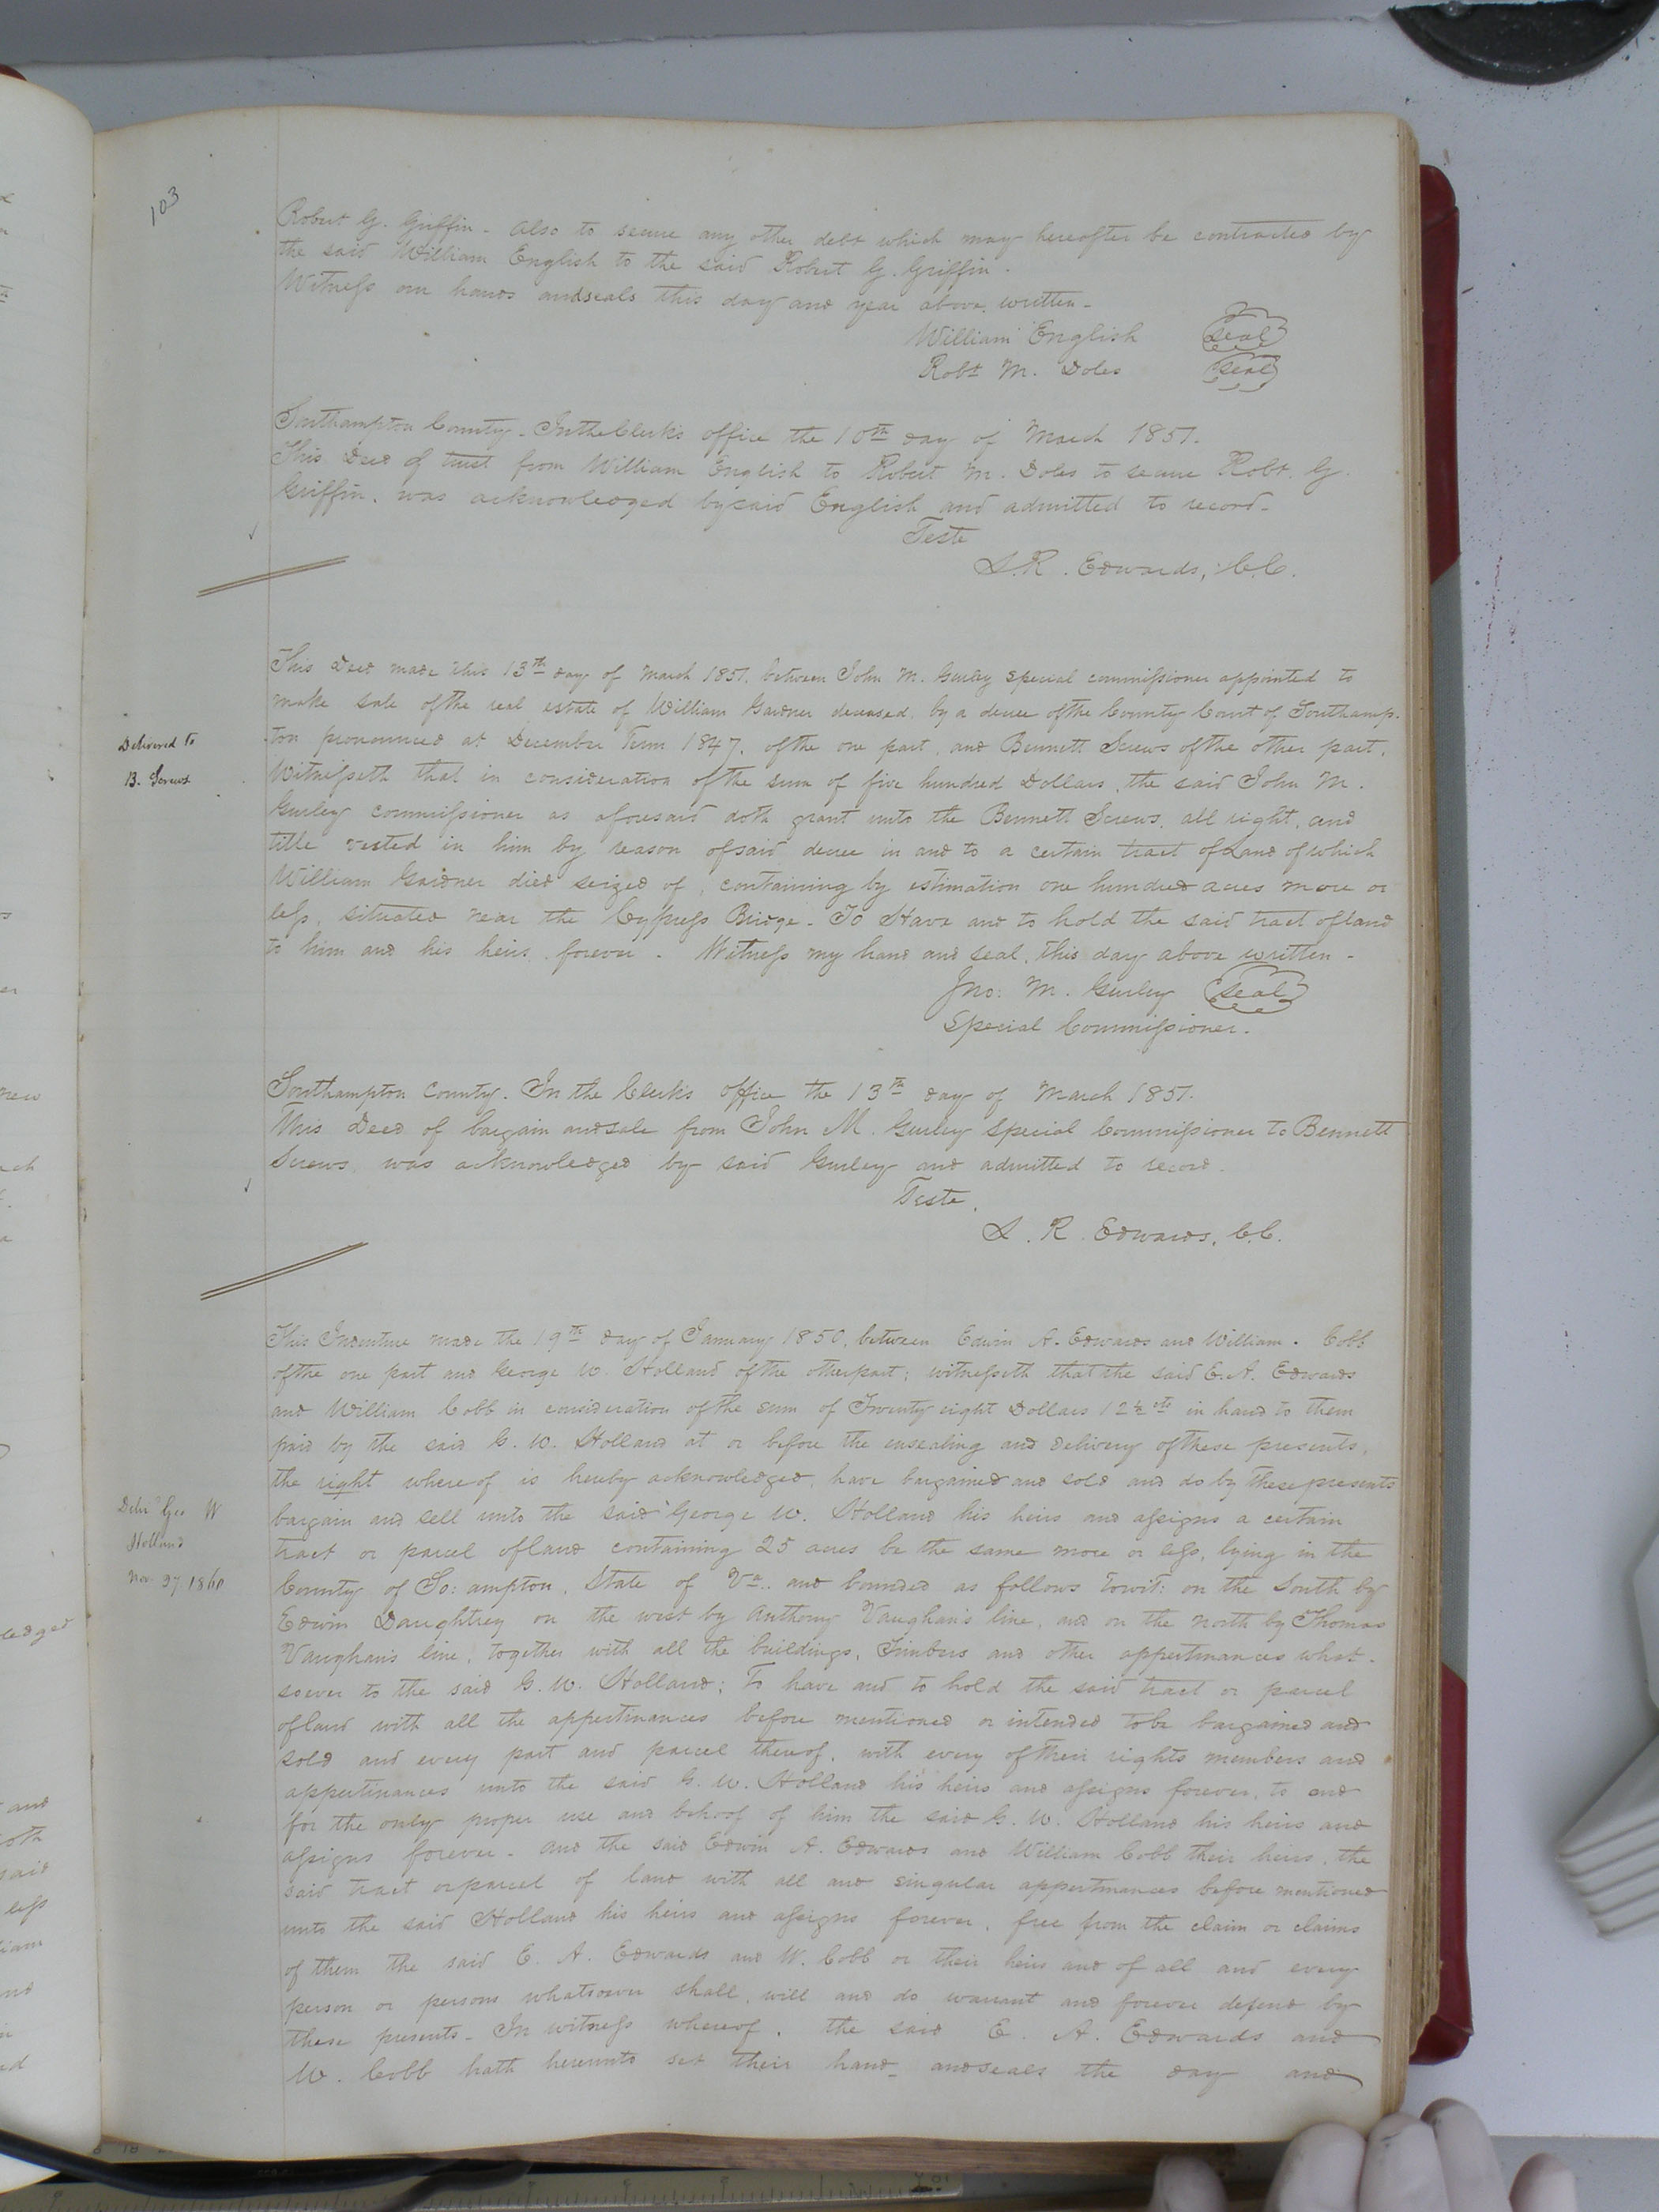 103
Robert G. Griffin - Also to secure any other debt which may hereafter be contracted by
the said William English to the said Robert G. Griffin.
Witness our hands and seals this day and year above written -
William English Seal
Robt M. Doles Seal
Southampton County - In the Clerk's office the 10th day of March 1851.
This Deed of trust from William English to Robert M. Doles to secure Robt. G.
Griffin, was acknowledged by said English and admitted to record -
Teste
L. R. Edwards, C.C.
This Deed made this 13th day of March 1851, between John M. Gurley Special commissioner appointed to
make sale of the real estate of William Gardner deceased, by a decree of the County Court of Southamp-
ton pronounced at December Term 1847, of the one part, and Bennett Screws of the other part,
Delivered to
B. Screws
Witnesseth that in consideration of the sum of five hundred Dollars, the said John M.
Gurley commissioner as aforesaid doth grant unto the Bennett Screws, all right, and
title vested in him by reason of said decree in and to a certain tract of Land of which
William Gardner died seized of, containing by estimation one hundred acres more or
less, situated near the Cypress Bridge - To Have and to hold the said tract of land
to him and his heirs forever. Witness my hand and seal, this day above written -
Jno: M. Gurley Seal
Special Commissioner.
Southampton County. In the Clerk's office the 13th day of March 1851.
This Deed of bargain and sale from John M. Gurley Special Commissioner to Bennett
Screws, was acknowledged by said Gurley and admitted to record.
Teste,
L. R. Edwards, C.C.
This Indenture made the 19th day of January 1850, between Edwin A. Edwards and William. Cobb
of the one part and George W. Holland of the other part; witnesseth that the said E. A. Edwards
and William Cobb in consideration of the sum of Twenty eight Dollars 12½ cts in hand to them
paid by the said G. W. Holland at or before the ensealing and delivery of these presents,
the right whereof is hereby acknowledged, have bargained and sold and do by these presents
bargain and sell unto the said George W. Holland his heirs and assigns a certain
tract or parcel of land containing 25 acres be the same more or less, lying in the
Delv'd Geo W
Holland
Nov 27 1860
County of So: ampton, State of Va. and bounded as follows Towit: on the South by
Edwin Daughtrey on the west by Anthony Vaughan's line, and on the north by Thomas
Vaughan's line, together with all the buildings, Timbers and other appertinances what-
soever to the said G. W. Holland; To have and to hold the said tract or parcel
of land with all the appertinances before mentioned or intended to be bargained and
sold and every part and parcel thereof, with every of their rights members and
appertinances unto the said G. W. Holland his heirs and assigns forever, to and
for the only proper use and behoof of him the said G. W. Holland his heirs and
assigns forever - And the said Edwin A. Edwards and William Cobb their heirs, the
said tract or parcel of land with all and singular appertinances before mentioned
unto the said Holland his heirs and assigns forever, free from the claim or claims
of them the said E. A. Edwards and W. Cobb or their heirs and of all and every
person or persons whatsoever shall, will and do warrant and forever defend by
these presents - In witness whereof, the said E. A. Edwards and
W. Cobb hath hereunto set their hand and seals the day and